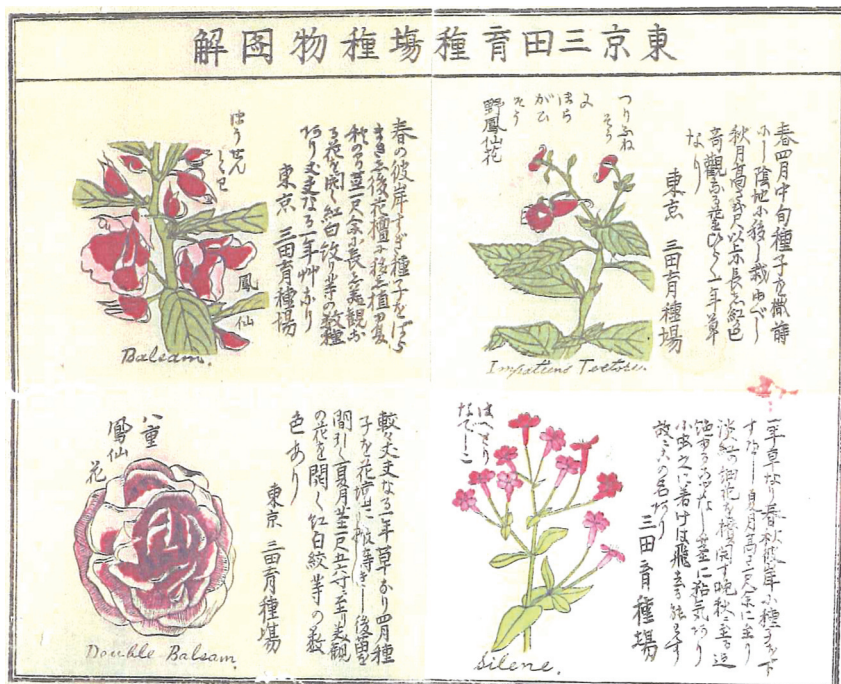 東京三田育種塲種物図解
春四月中旬種子を撒蒔
し陰地小移し栽ゆべし
秋月高さ弐尺以上小長じ紅色
奇観なる花をひらく一年草
なり
東京 三田育種場
つりふね
そう
又
ほら
がひ
そう
野鳳仙花
Impatiens
春の彼岸すぎ種子をばら
まき立後花壇に移し植る夏
秋のころ茎一尺余小長じ美観な
る花を開く紅白絞り等の数種
あり丈夫なる一年艸なり
東京 三田育種場
ほうせん
くわ
鳳仙
Balsam.
一年草なり春秋彼岸小種子を下
すべし夏月高さ一尺余に至り
淡紅の細花を攅開す晩秋に至る迄
絶ゆることなし茎に粘気あり
小虫之に着けば飛去る能はず
故に此の名あり
三田育種場
はへとり
なでしこ
silene.
較々丈夫なる一年草なり四月種
子を花壇に散蒔きし後苗を
間引く夏月茎一尺五六寸に至り美観
の花を開く紅白絞等の数
色あり
東京 三田育種場
八重
鳳仙
花
Double Balsam.